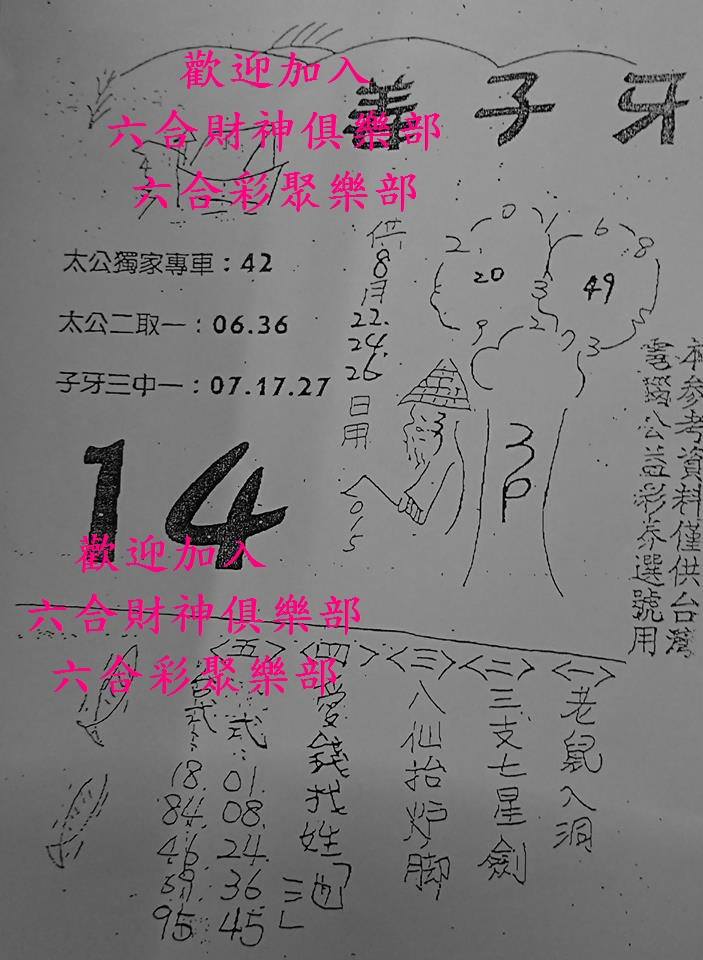 歡迎加入
六合財神俱樂部
六合彩聚樂部
姜子牙
太公獨家專車：42
太公二取一：06.36
子牙三中一：07.17.27
14
供8月22.24.26日用
2 0 1 6 8
20 3 49
9 2 7 3 5
本參考資料僅供台灣
電腦公益彩券選號用
歡迎加入
六合財神俱樂部
六合彩聚樂部
<一>老鼠入洞
<二>三支七星劍
<三>八仙抬炉脚
<四>愛錢找姓
<五>
式：01.08.24.36.45
合式：18.84.46.39.95